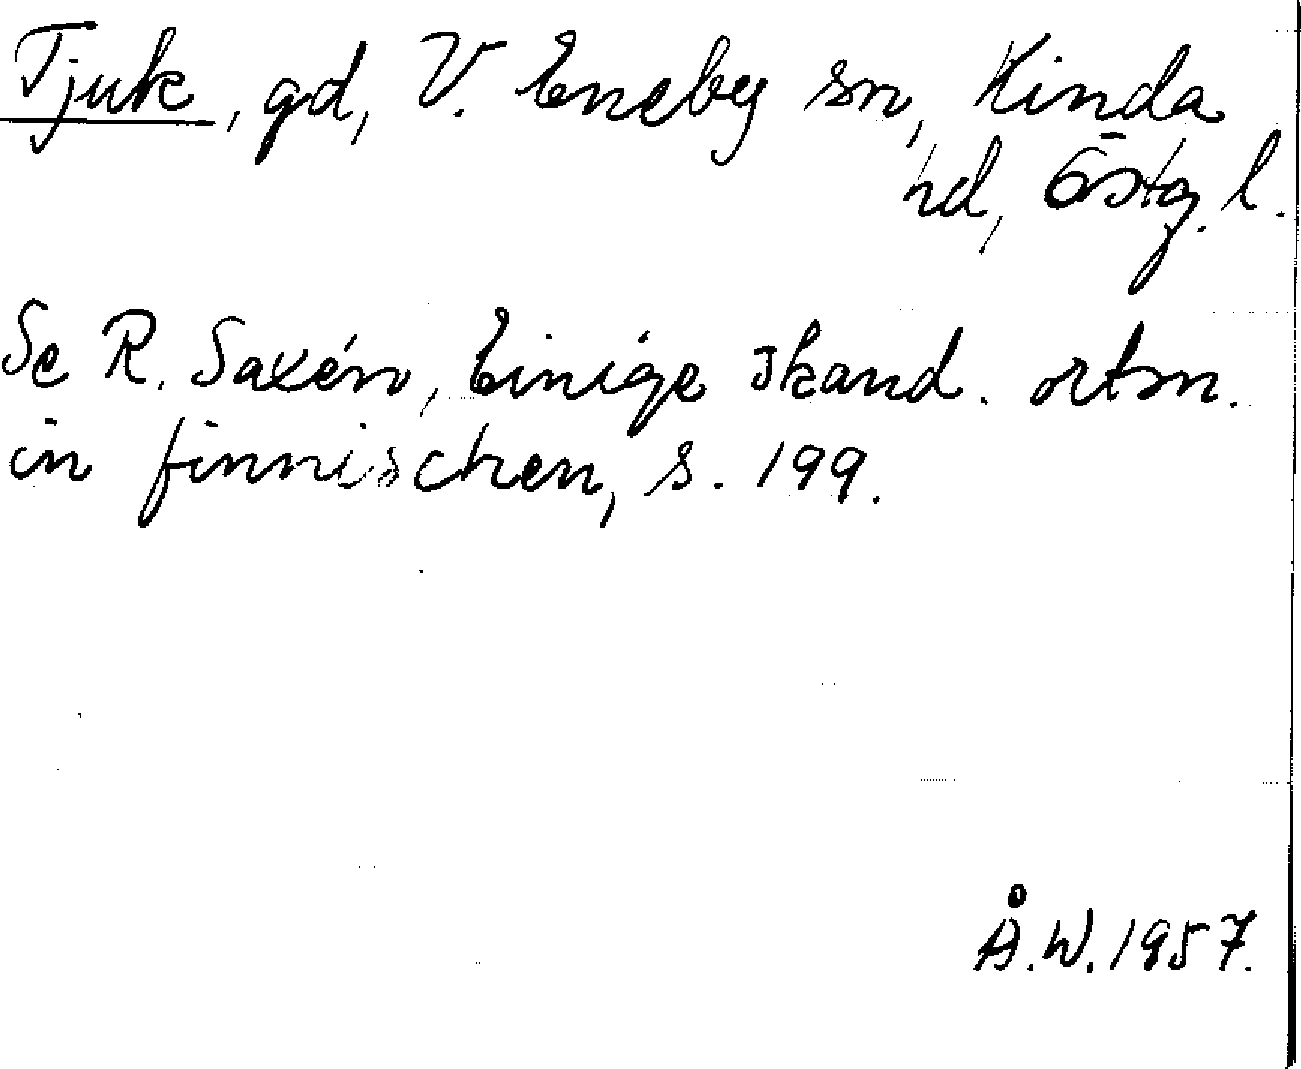 Tjuk, gd, V. Eneby sn, Kinda
hd, Östg. l.
Se R. Saxén, Einige skand. ortsn.
in finnischen, s. 199.
Å.W. 1957.